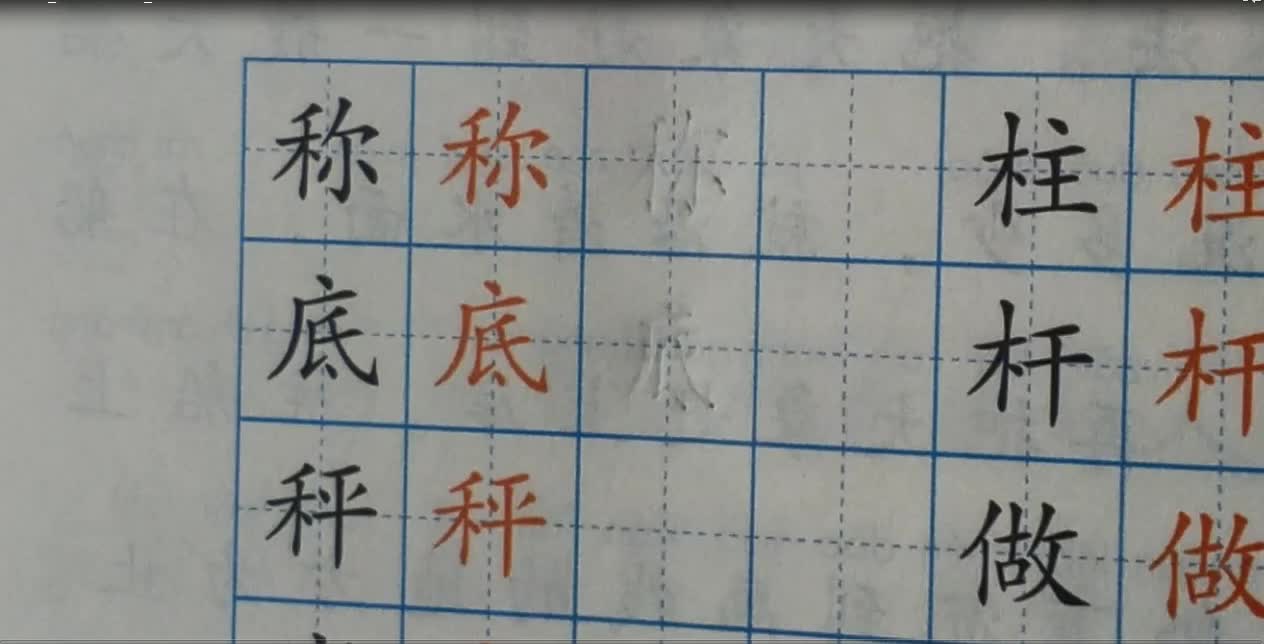 称 称 称 柱 柱
底 底 底 杆 杆
秤 秤 做 做